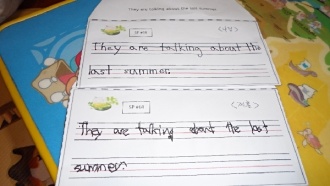 They are talking about the last summer.
They are talking about the
last summer.
They are talking about the last
summer.